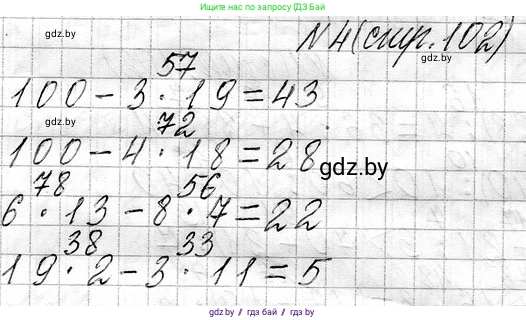 Ищите нас по запросу(/ДЗ Бай)
gdz.by
N 4 (стр. 102)
gdz.by
57
100 - 3 · 19 = 43
gdz.by
72
100 - 4 · 18 = 28
gdz.by
78 56
6 · 13 - 8 · 7 = 22
38 33
19 · 2 - 3 · 11 = 5
gdz.by / гдз бай / gdz.by / гдз бай